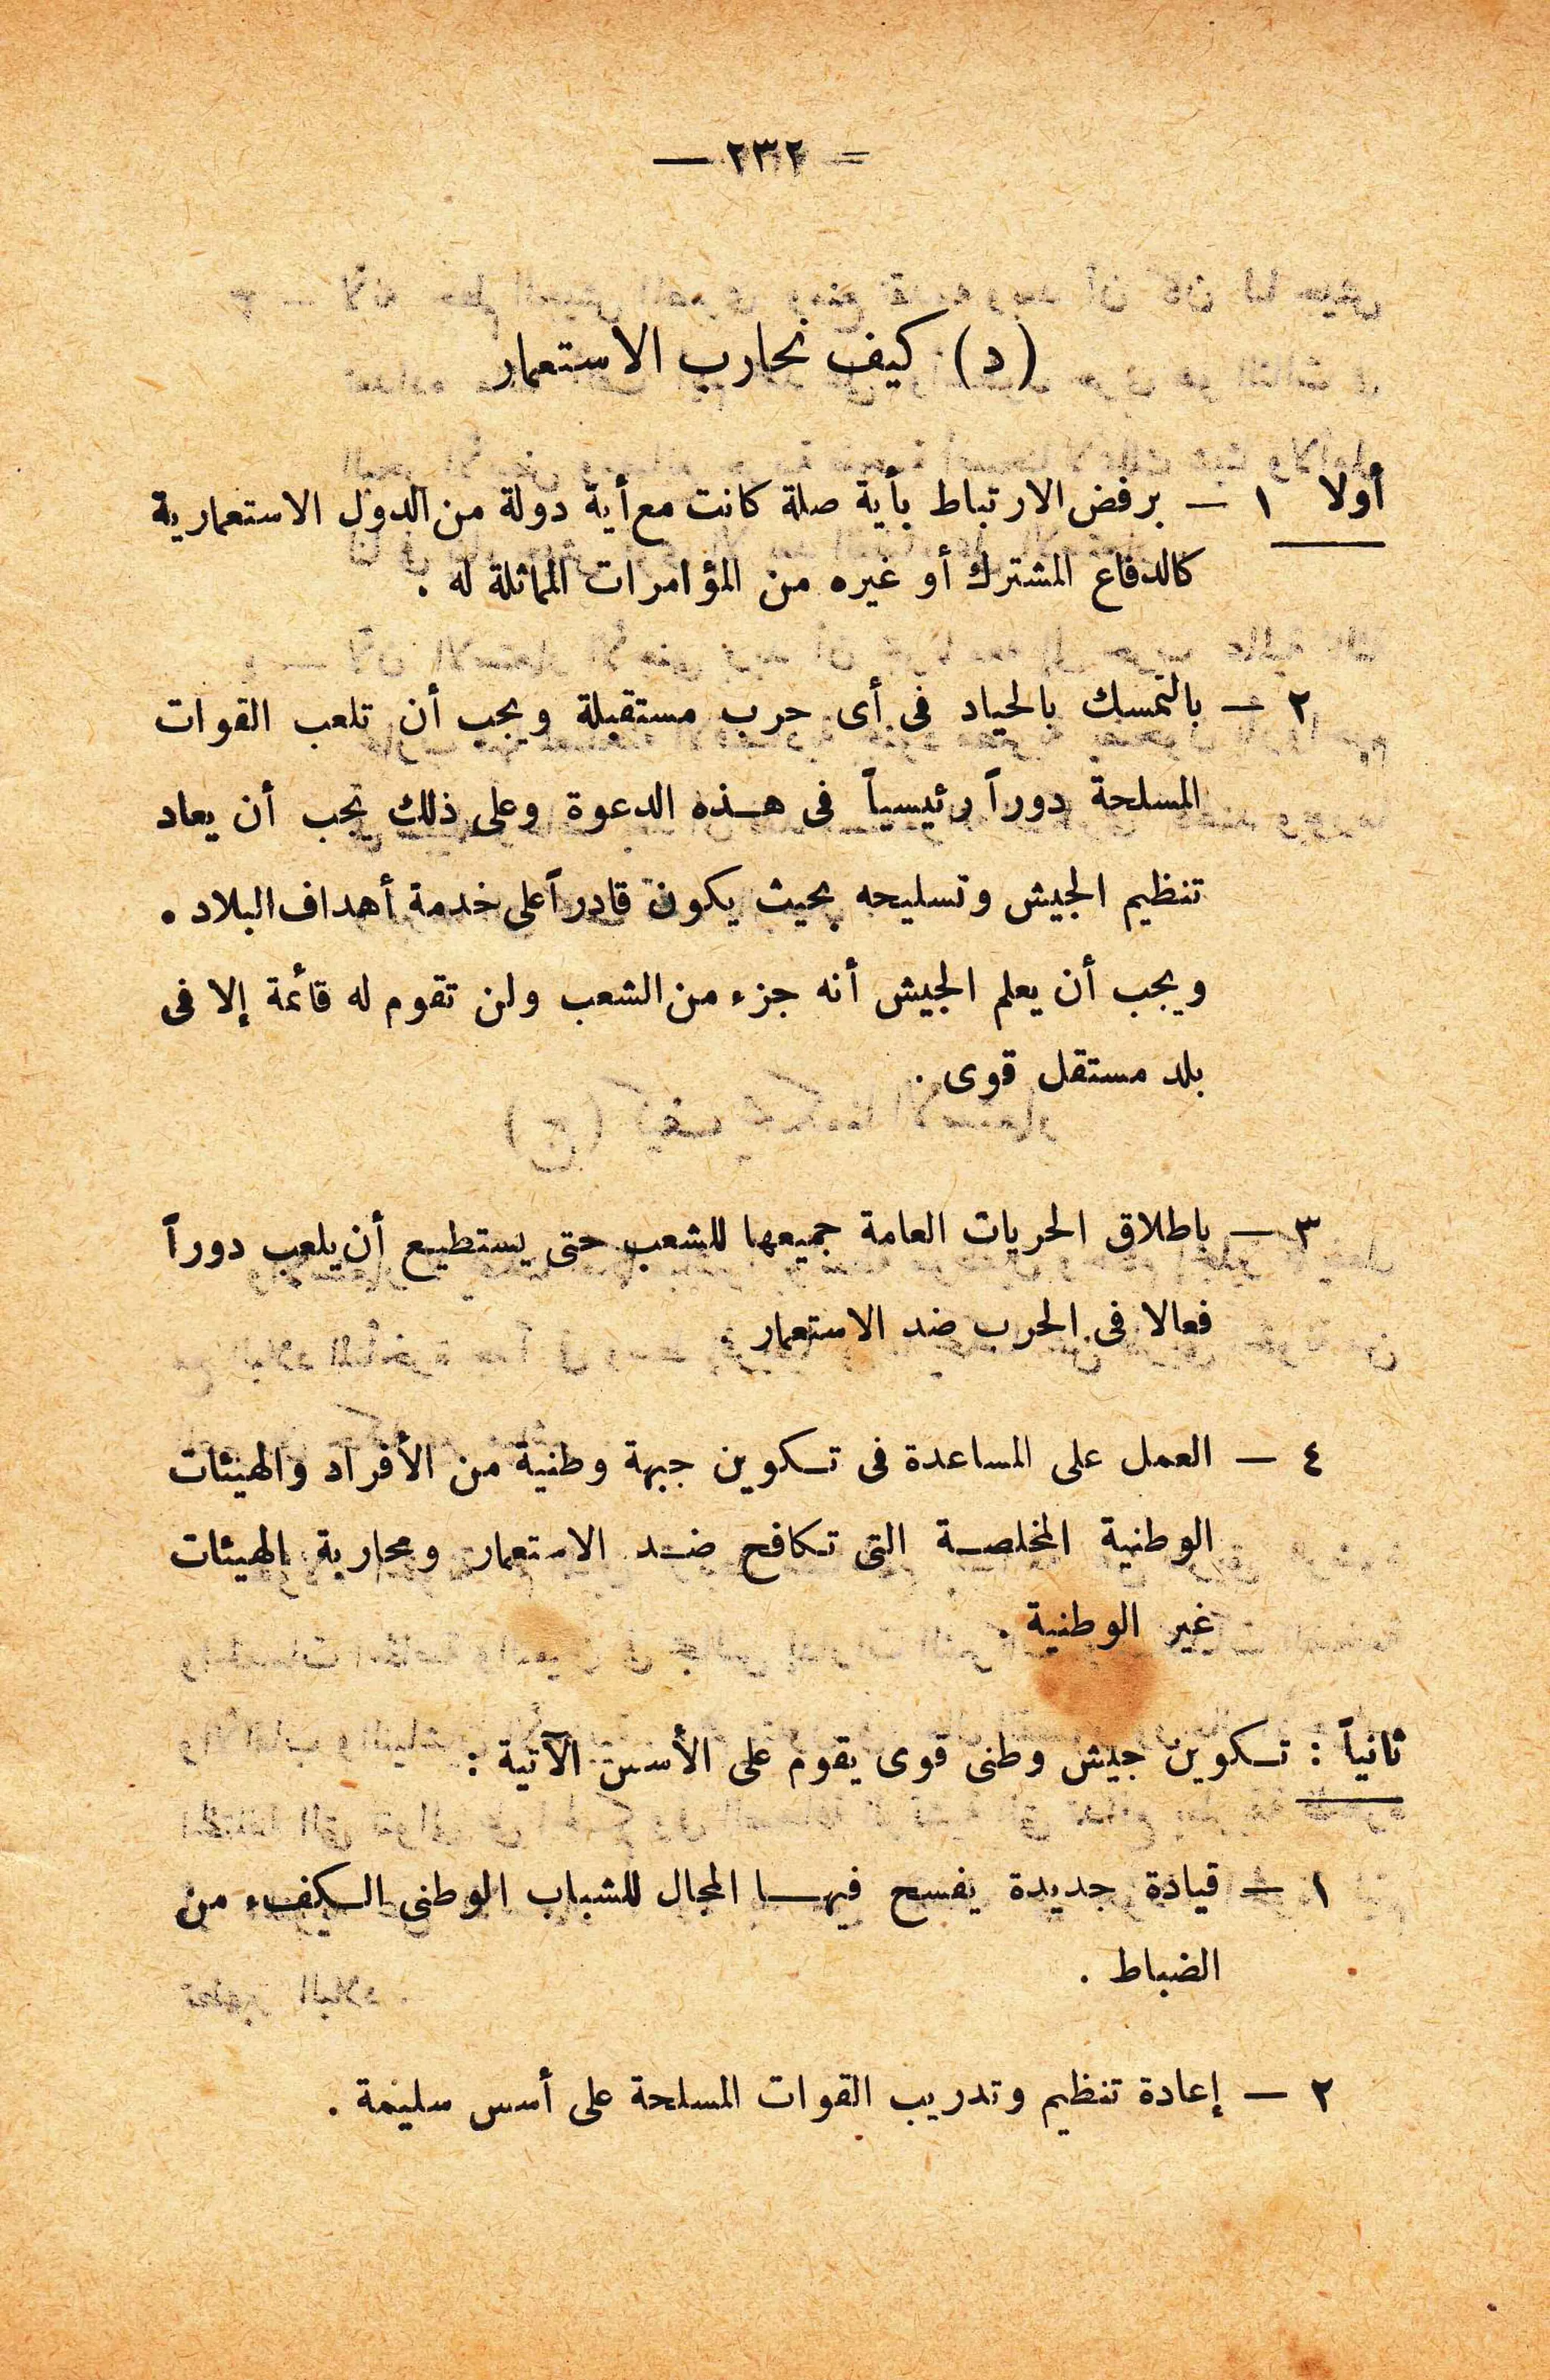 — ٢٣٢ —
(د) كيف نحارب الاستعمار
أولا ١ — برفض الارتباط بأية صلة كانت مع أية دولة من الدول الاستعمارية
كالدفاع المشترك أو غيره من المؤامرات المماثلة له .
٢ — بالتمسك بالحياد فى أى حرب مستقبلة ويجب أن تلعب القوات
المسلحة دوراً رئيسياً فى هذه الدعوة وعلى ذلك يجب أن يعاد
تنظيم الجيش وتسليحه بحيث يكون قادراً على خدمة أهداف البلاد .
ويجب أن يعلم الجيش أنه جزء من الشعب ولن تقوم له قائمة إلا فى
بلد مستقل قوى .
٣ — باطلاق الحريات العامة جميعها للشعب حتى يستطيع أن يلعب دوراً
فعالا فى الحرب ضد الاستعمار .
٤ — العمل على المساعدة فى تكوين جبهة وطنية من الأفراد والهيئات
الوطنية المخلصة التى تكافح ضد الاستعمار ومحاربة الهيئات
غير الوطنية .
ثانياً : تكوين جيش وطنى قوى يقوم على الأسس الآتية :
١ — قيادة جديدة يفسح فيها المجال للشباب الوطنى الكفء من
الضباط .
٢ — إعادة تنظيم وتدريب القوات المسلحة على أسس سليمة .